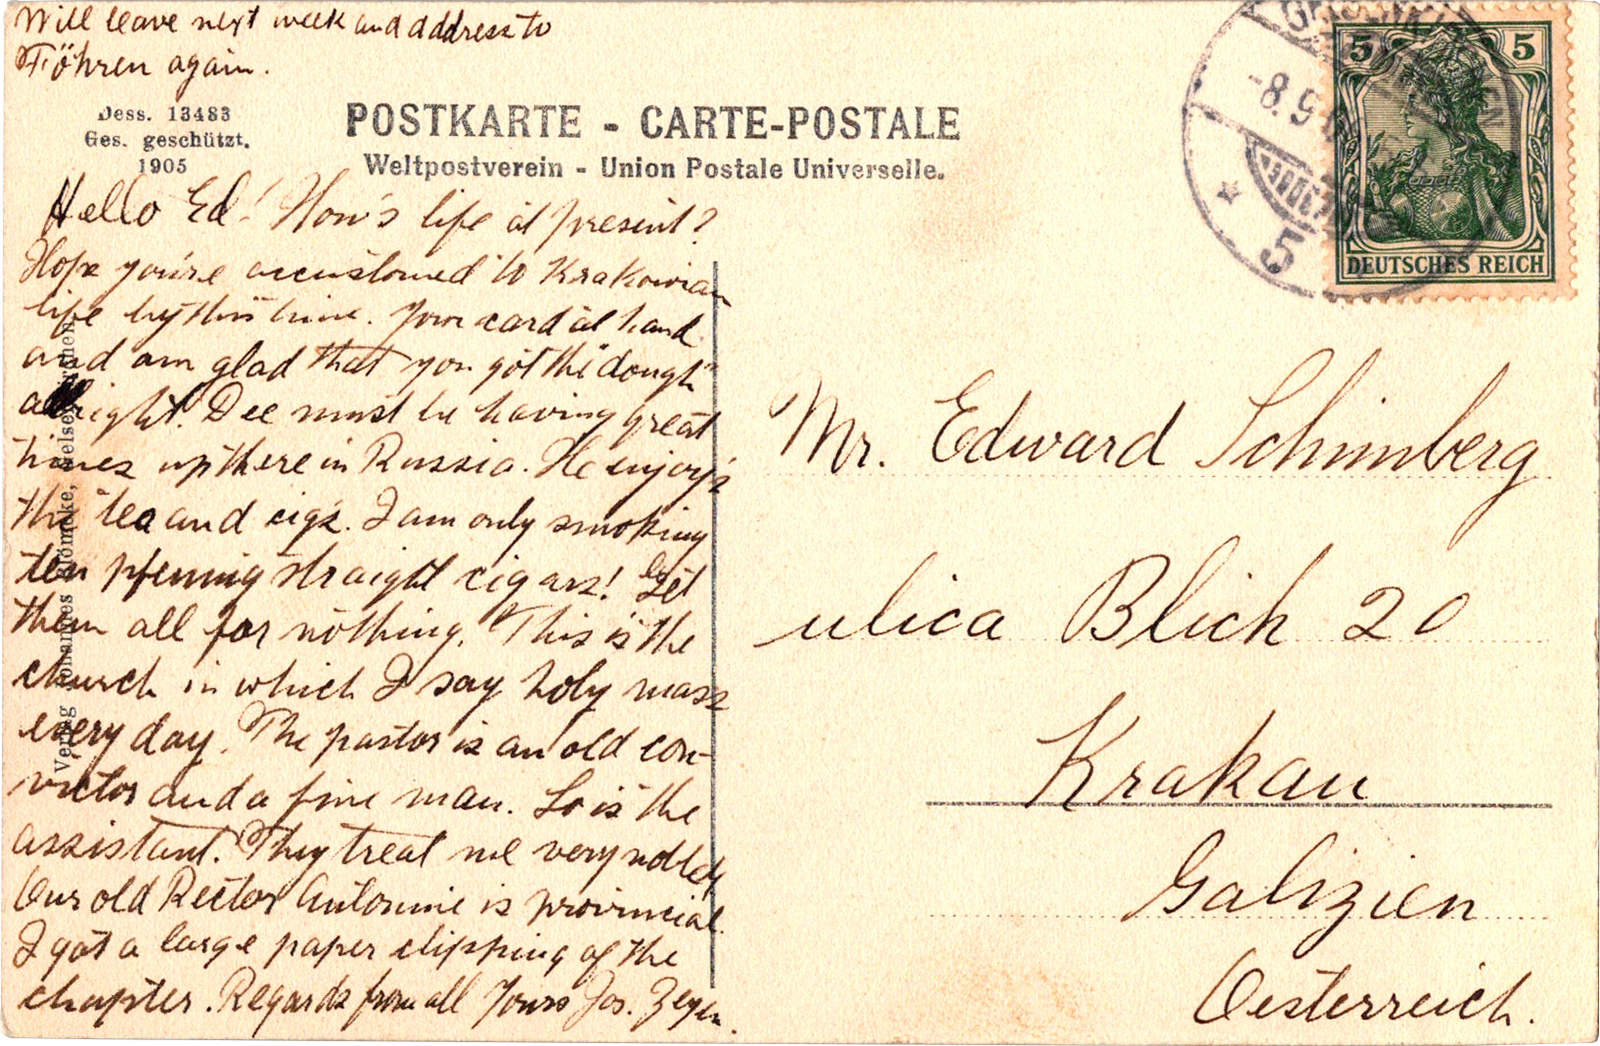 Will leave next week and address to
Föhren again.
Dess. 13483
Ges. geschützt.
1905
POSTKARTE - CARTE-POSTALE
Weltpostverein - Union Postale Universelle.
Hello Ed! How's life at present?
Hope you're accustomed to Krakowian
life by this time. Your card at hand
and am glad that you got the "dough"
allright. Dee must be having great
times up there in Russia. He enjoys
the tea and cigs. I am only smoking
ten pfennig straight cigars! Get
them all for nothing. This is the
church in which I say holy mass
every day. The pastor is an old con-
victor and a fine man. So is the
assistant. They treat me very nobly
Our old Rector Antonine is provincial.
I got a large paper clipping of the
chapter. Regards from all Yours Jos. Zeyen.
Verlag Johannes
5 5
DEUTSCHES REICH
-8.9
5
Mr. Edward Schimberg
ulica Blich 20
Krakau
Galizien
Oesterreich.